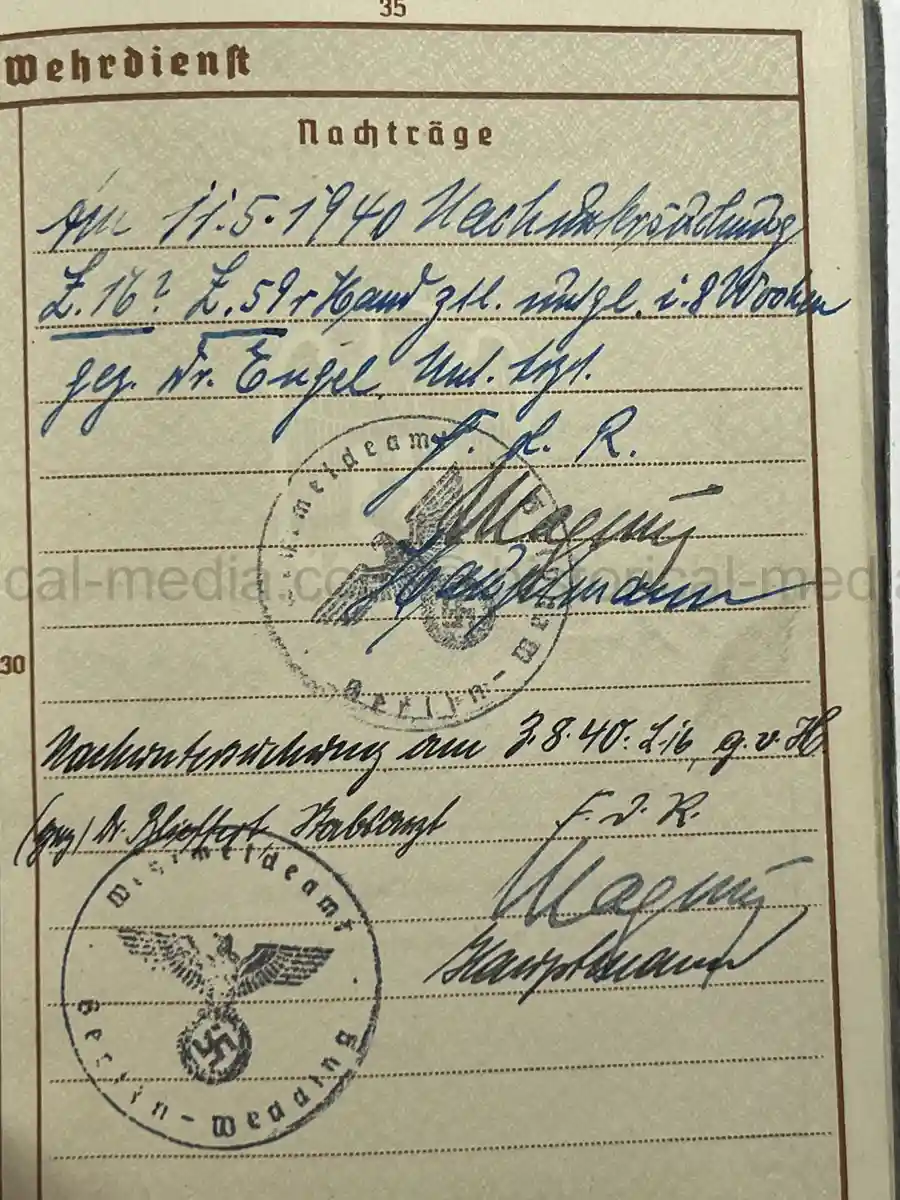 35
Wehrdienst
Nachträge
Am 11.5.1940 Nachuntersuchung
Z.16? Z.59 r Hand ztl. untgl. i. 8 Wochen
gez. Dr. Engel, Unt. Arzt.
F. d. R.
Magnus
Hauptmann
Wehrmeldeamt
Berlin-Wedding
30
Nachuntersuchung am 3.8.40: L 16, g.v.H
(gez) Dr. Stabsarzt F. d. R.
Magnus
Hauptmann
Wehrmeldeamt
Berlin-Wedding
cal-media.co
rical-med